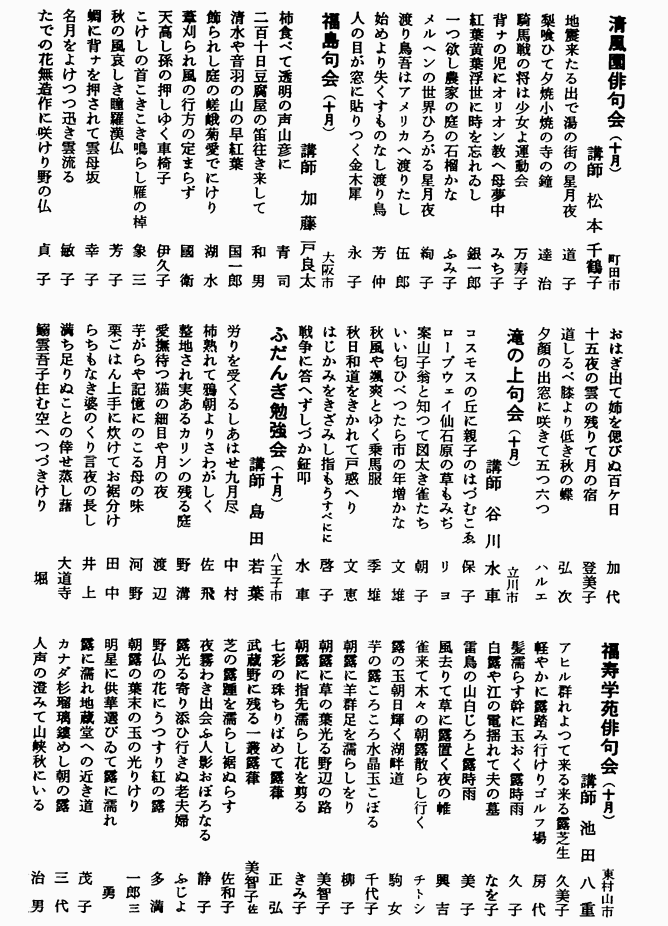 清風園俳句会（十月）
町田市
講師 松本千鶴子
地震来たる出で湯の街の星月夜 道子
梨喰ひて夕焼小焼の寺の鐘 達治
騎馬戦の将は少女よ運動会 万寿子
背ナの児にオリオン教へ母夢中 みち子
紅葉黄葉浮世に時を忘れゐし 銀一郎
一つ欲し農家の庭の石榴かな ふみ子
メルヘンの世界ひろがる星月夜 絢子
渡り鳥吾はアメリカへ渡りたし 伍郎
始めより失くすものなし渡り鳥 芳仲
人の目が窓に貼りつく金木犀 永子
福島句会（十月）
大阪市
講師 加藤戸良太
柿食べて透明の声山彦に 青司
二百十日豆腐屋の笛往き来して 和男
清水や音羽の山の早紅葉 国一郎
飾られし庭の嵯峨菊愛でにけり 湖水
藁刈られ風の行方の定まらず 國衛
天高し孫の押しゆく車椅子 伊久子
こけしの首こきこき鳴らし雁の棹 象三
秋の風哀しき瞳羅漢仏 芳子
蜩に背ナを押されて雲母坂 幸子
名月をよけつつ迅き雲流る 敏子
たでの花無造作に咲けり野の仏 貞子
おはぎ出て姉を偲びぬ百ケ日 加代
十五夜の雲の残りて月の宿 登美子
道しるべ膝より低き秋の蝶 弘次
夕顔の出窓に咲きて五つ六つ ハルエ
滝の上句会（十月）
立川市
講師 谷川水車
コスモスの丘に親子のはづむこゑ 保子
ロープウェイ仙石原の草もみぢ リヨ
案山子翁と知つて図太き雀たち 朝子
いい匂ひべつたら市の年増かな 文雄
秋風や颯爽とゆく乗馬服 季雄
秋日和道をきかれて戸惑へり 文恵
はじかみをきざみし指もうすべにに 啓子
戦争に答へずしづか鉦叩 水車
ふだんぎ勉強会（十月）
八王子市
講師 島田若葉
労りを受くるしあはせ九月尽 中村
柿熟れて鴉朝よりさわがしく 佐飛
整地され実あるカリンの残る庭 野溝
愛撫待つ猫の細目や月の夜 渡辺
芋がらや記憶にのこる母の味 河野
栗ごはん上手に炊けてお裾分け 田中
らちもなき婆のくり言夜の長し 井上
満ち足りぬことの倖せ蒸し藷 大道寺
鰯雲吾子住む空へつづきけり 堀
福寿学苑俳句会（十月）
東村山市
講師 池田八重
アヒル群れよつて来る来る露芝生 久美子
軽やかに露踏み行けりゴルフ場 房代
髪濡らす幹に玉おく露時雨 久子
白露や江の電揺れて夫の墓 なを子
雷鳥の山白じろと露時雨 美子
風去りて草に露置く夜の帷 興吉
雀来て木々の朝露散らし行く チトシ
露の玉朝日輝く湖畔道 駒女
芋の露ころころ水晶玉こぼる 千代子
朝露に羊群足を濡らしをり 柳子
朝露に草の葉光る野辺の路 美智子
朝露に指先濡らし花を剪る きみ子
七彩の珠ちりばめて露葎 正弘
武蔵野に残る一叢露葎 美智子佐
芝の露踵を濡らし裾ぬらす 佐和子
夜霧わき出会ふ人影おぼろなる 静子
露光る寄り添ひ行きぬ老夫婦 ふじよ
野仏の花にうつすり紅の露 多満
朝露の葉末の玉の光りけり 一郎三
明星に供華選びゐて露に濡れ 勇
露に濡れ地蔵堂への近き道 茂子
カナダ杉瑠璃鏤めし朝の露 三代
人声の澄みて山峡秋にいる 治男